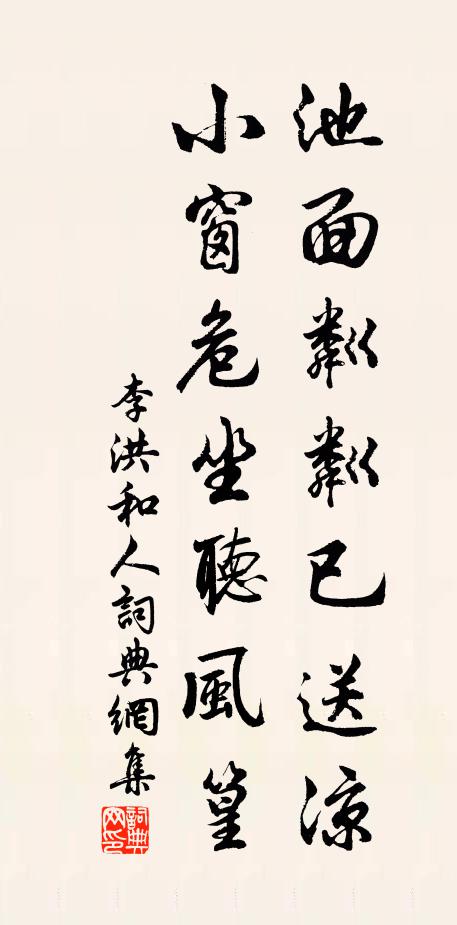 池面粼粼已送凉
小窗危坐聽風篁
李洪和人詞典網集
詞典网印